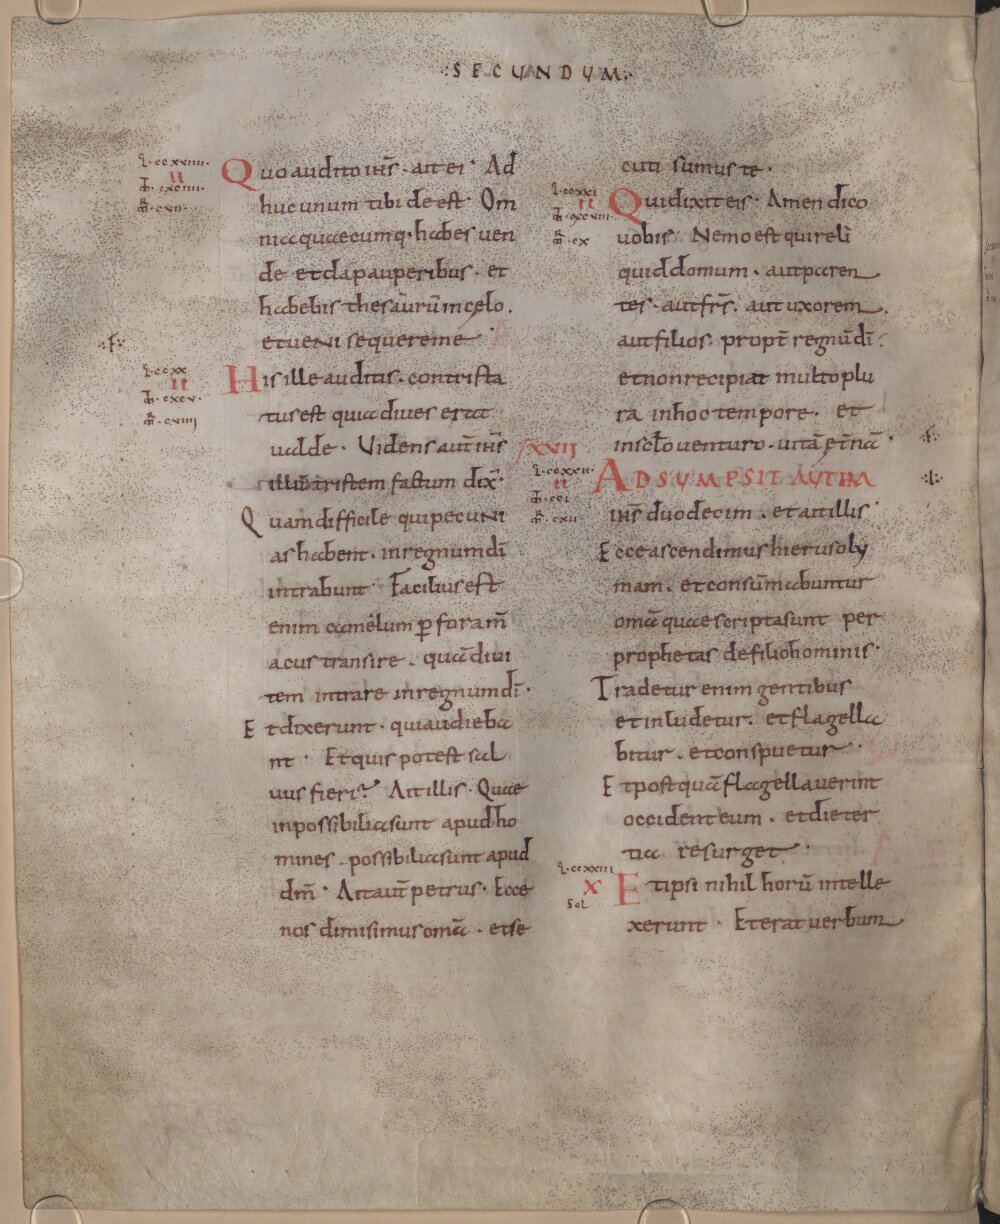 :SECUNDUM:
l·ccxviiii·
II
m̄·cxciiii·
m̄r·cvii·
Quo audito ih̄s · ait ei · Ad
huc unum tibi deest · Om
nia quaecumq· habes uen
de et da pauperibus · et
habebis thesaurū in celo.
et ueni sequere me·
l·ccxx
II
m̄·cxcv·
m̄r·cviiii
His ille auditis · contrista
tus est quia diues erat
ualde · Uidens aut̄ ih̄s
illum tristem factum dix̄·
Quam difficile qui pecuni
as habent · in regnum dī
intrabunt · Facilius est
enim camelum ꝑ foram̄
acus transire · quā diui
tem intrare in regnum dī·
Et dixerunt · qui audieba
nt · Et quis potest sal
uus fieri? Ait illis · Quae
inpossibilia sunt apud ho
mines · possibilia sunt apud
dm̄ · Ait aut̄ petrus · Ecce
nos dimisimus omā · et se
cuti sumus te ·
l·ccxxi
II
m̄·cxcviii·
m̄r·cx
Qui dixit eis · Amen dico
uobis · Nemo est qui reli
quid domum · aut paren
tes · aut frs̄ · aut uxorem
aut filios · propt̄ regnū dī ·
et non recipiat multo plu
ra in hoc tempore · et
in sclo uenturo · uitā et̄nā·
XXVII
l·ccxxii·
II
m̄·cci
m̄r·cxii
ADSUMPSIT AUTEM
ih̄s duodecim · et ait illis·
Ecce ascendimus hierusoly
mam · et consūmabuntur
omā quae scripta sunt per
prophetas de filio hominis·
Tradetur enim gentibus
et inludetur · et flagella
bitur · et conspuetur ·
Et postquā flagellauerint
occident eum · et die ter
tia resurget ·
l·ccxxiii
X
Sol
Et ipsi nihil horū intelle
xerunt · Et erat uerbum